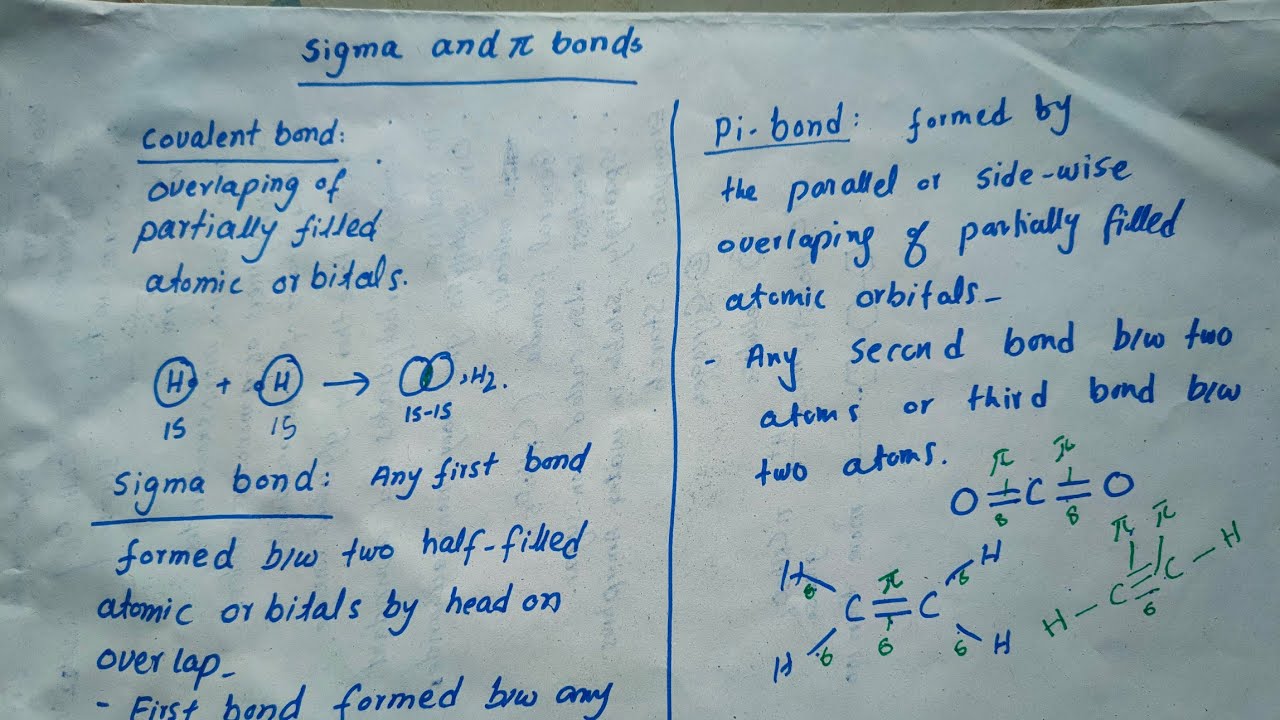 Sigma and π bonds
Covalent bond:
overlaping of
partially filled
atomic orbitals.
H + H → , H2.
1S 1S 1S-1S
Sigma bond: Any first bond
formed b/w two half-filled
atomic orbitals by head on
overlap-
- First bond formed b/w any
Pi-bond: formed by
the parallel or side-wise
overlaping of partially filled
atomic orbitals-
- Any second bond b/w two
atoms or third bond b/w
two atoms.
π π
O=C=O
8 8
π π
H H H
6 π 6
C=C C≡C
6 6 6 6
H H H